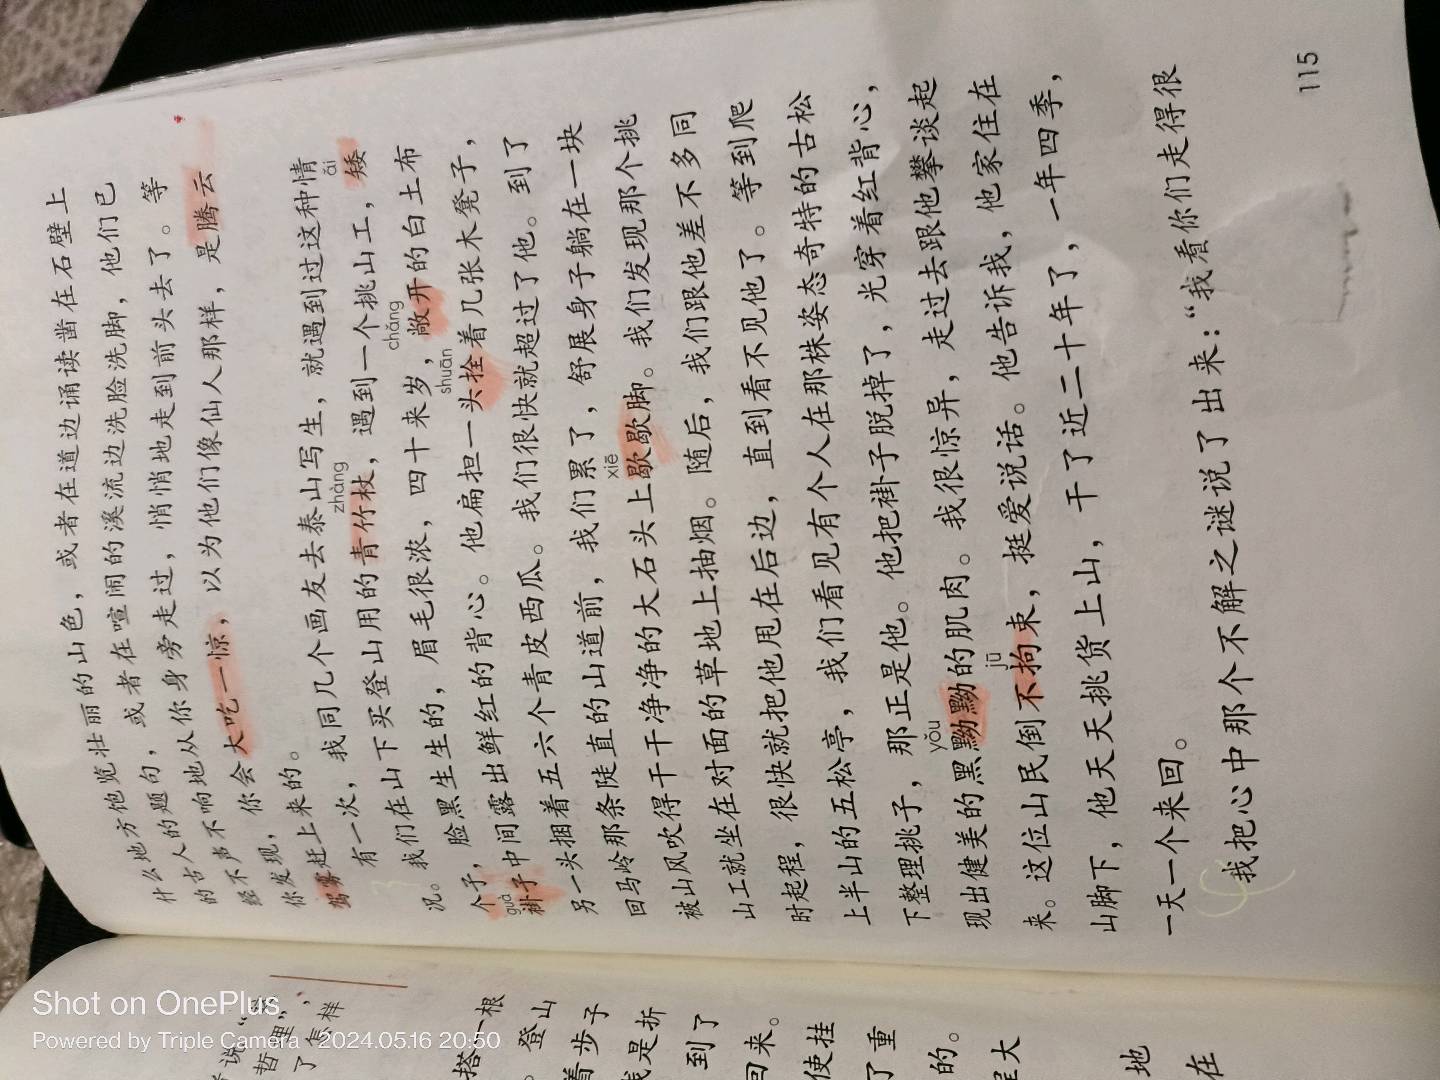 什么地方饱览壮丽的山色，或者在道边诵读凿在石壁上
的古人的题句，或者在喧闹的溪流边洗脸洗脚，他们已
经不声不响地从你身旁走过，悄悄地走到前头去了。等
你发现，你会大吃一惊，以为他们像仙人那样，是腾云
驾雾赶上来的。
有一次，我同几个画友去泰山写生，就遇到过这种情
zhàng
ǎi
况。我们在山下买登山用的青竹杖，遇到一个挑山工，矮
chǎng
个子，脸黑生生的，眉毛很浓，四十来岁，敞开的白土布
guà
shuān
褂子中间露出鲜红的背心。他扁担一头拴着几张木凳子，
另一头捆着五六个青皮西瓜。我们很快就超过了他。到了
回马岭那条陡直的山道前，我们累了，舒展身子躺在一块
xiē
被山风吹得干干净净的大石头上歇歇脚。我们发现那个挑
山工就坐在对面的草地上抽烟。随后，我们跟他差不多同
时起程，很快就把他甩在后边，直到看不见他了。等到爬
上半山的五松亭，我们看见有个人在那株姿态奇特的古松
下整理挑子，那正是他。他把褂子脱掉了，光穿着红背心，
yǒu
现出健美的黑黝黝的肌肉。我很惊异，走过去跟他攀谈起
jū
来。这位山民倒不拘束，挺爱说话。他告诉我，他家住在
山脚下，他天天挑货上山，干了近二十年了，一年四季，
一天一个来回。
我把心中那个不解之谜说了出来：“我看你们走得很
115
哲理”，
了怎样
搭一根
。登山
着步子
我是折
到了
回来。
使挂
了重
的。
是大
地
在
Shot on OnePlus
Powered by Triple Camera 2024.05.16 20:50